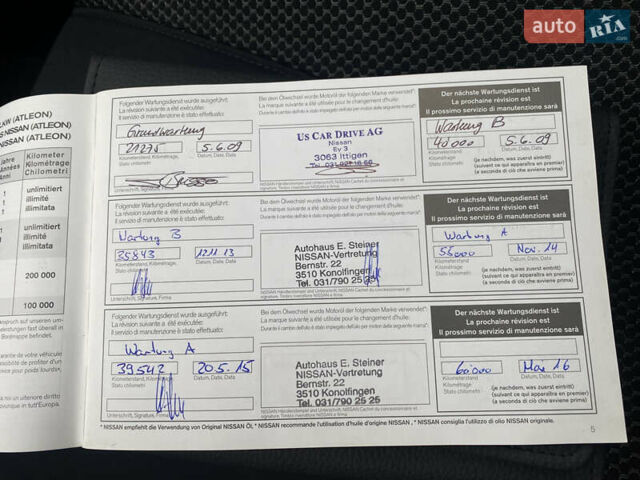 auto RIA
.com
LKW (ATLEON)
S NISSAN (ATLEON)
NISSAN (ATLEON)
Jahre
Années
Anni
Kilometer
Kilométrage
Chilometri
unlimitiert
illimité
illimitata
unlimitiert
illimité
illimitata
200 000
100 000
Folgender Wartungsdienst wurde ausgeführt:
La révision suivante a été exécutée:
Il servizio di manutenzione è stato effettuato:
Grundwartung
21275 5.6.09
Kilometerstand, Kilométrage, Datum, Date, Data
Stato chilometri
Unterschrift, Signature, Firma
Bei dem Ölwechsel wurde Motoröl der folgenden Marke verwendet*:
La marque suivante a été utilisée pour le changement d'huile:
Durante il cambio dell'olio è stato impiegato dell'olio per motori della seguente marca*:
US CAR DRIVE AG
Nissan
Ey 3
3063 Ittigen
Der nächste Wartungsdienst ist
La prochaine révision est
Il prossimo servizio di manutenzione sarà
Wartung B
40000 5.6.09
Kilometerstand Datum, Date, Data
Kilométrage
Stato chilometri
(je nachdem, was zuerst eintritt)
(suivant ce qui apparaîtra en premier)
(a seconda di ciò che avviene prima)
Folgender Wartungsdienst wurde ausgeführt:
La révision suivante a été exécutée:
Il servizio di manutenzione è stato effettuato:
Wartung B
35843 12.11.13
Kilometerstand, Kilométrage, Datum, Date, Data
Stato chilometri
Unterschrift, Signature, Firma
Bei dem Ölwechsel wurde Motoröl der folgenden Marke verwendet*:
La marque suivante a été utilisée pour le changement d'huile:
Durante il cambio dell'olio è stato impiegato dell'olio per motori della seguente marca*:
Autohaus E. Steiner
NISSAN-Vertretung
Bernstr. 22
3510 Konolfingen
Tel. 031/790 25 25
Der nächste Wartungsdienst ist
La prochaine révision est
Il prossimo servizio di manutenzione sarà
Wartung A
55000 Nov. 14
Kilometerstand Datum, Date, Data
Kilométrage
Stato chilometri
(je nachdem, was zuerst eintritt)
(suivant ce qui apparaîtra en premier)
(a seconda di ciò che avviene prima)
Folgender Wartungsdienst wurde ausgeführt:
La révision suivante a été exécutée:
Il servizio di manutenzione è stato effettuato:
Wartung A
39542 20.5.15
Kilometerstand, Kilométrage, Datum, Date, Data
Stato chilometri
Unterschrift, Signature, Firma
Bei dem Ölwechsel wurde Motoröl der folgenden Marke verwendet*:
La marque suivante a été utilisée pour le changement d'huile:
Durante il cambio dell'olio è stato impiegato dell'olio per motori della seguente marca*:
Autohaus E. Steiner
NISSAN-Vertretung
Bernstr. 22
3510 Konolfingen
Tel. 031/790 25 25
Der nächste Wartungsdienst ist
La prochaine révision est
Il prossimo servizio di manutenzione sarà
60000 Mai 16
Kilometerstand Datum, Date, Data
Kilométrage
Stato chilometri
(je nachdem, was zuerst eintritt)
(suivant ce qui apparaîtra en premier)
(a seconda di ciò che avviene prima)
* NISSAN empfiehlt die Verwendung von Original NISSAN ÖL, * NISSAN recommande l'utilisation d'huile d'origine NISSAN, * NISSAN consiglia l'utilizzo di olio NISSAN originale.
5